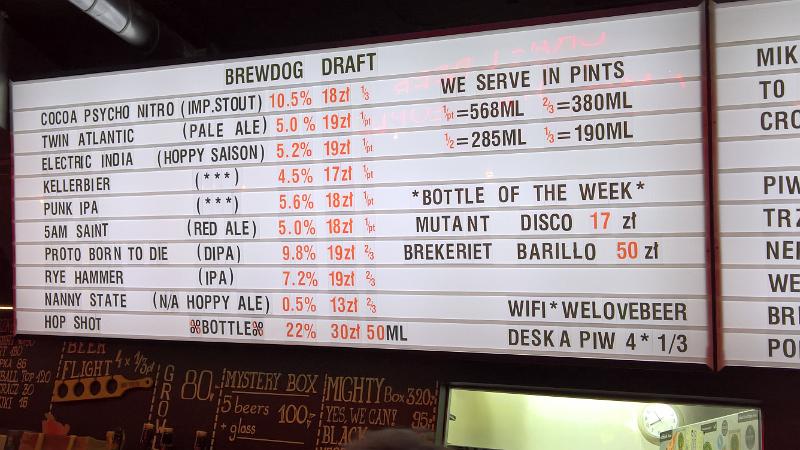 BREWDOG DRAFT
COCOA PSYCHO NITRO (IMP.STOUT) 10.5% 18zł 1/3
TWIN ATLANTIC (PALE ALE) 5.0% 19zł 1pt
ELECTRIC INDIA (HOPPY SAISON) 5.2% 19zł 1pt
KELLERBIER (***) 4.5% 17zł 1pt
PUNK IPA (***) 5.6% 18zł 1pt
5AM SAINT (RED ALE) 5.0% 18zł 1pt
PROTO BORN TO DIE (DIPA) 9.8% 19zł 2/3
RYE HAMMER (IPA) 7.2% 19zł 2/3
NANNY STATE (N/A HOPPY ALE) 0.5% 13zł 2/3
HOP SHOT ⌘BOTTLE⌘ 22% 30zł 50ML
WE SERVE IN PINTS
1pt=568ML 2/3=380ML
1/2=285ML 1/3=190ML
*BOTTLE OF THE WEEK*
MUTANT DISCO 17 zł
BREKERIET BARILLO 50 zł
WIFI*WELOVEBEER
DESKA PIW 4* 1/3
MIK
TO
CRO
PIW
TRZ
NEI
WE
BRI
POI
BEER
FLIGHT 4 x 1/3
GROW
80,-
MYSTERY BOX
5 beers 100,-
+ glass
MIGHTY Box 320,-
YES, WE CAN! 95
BLACK